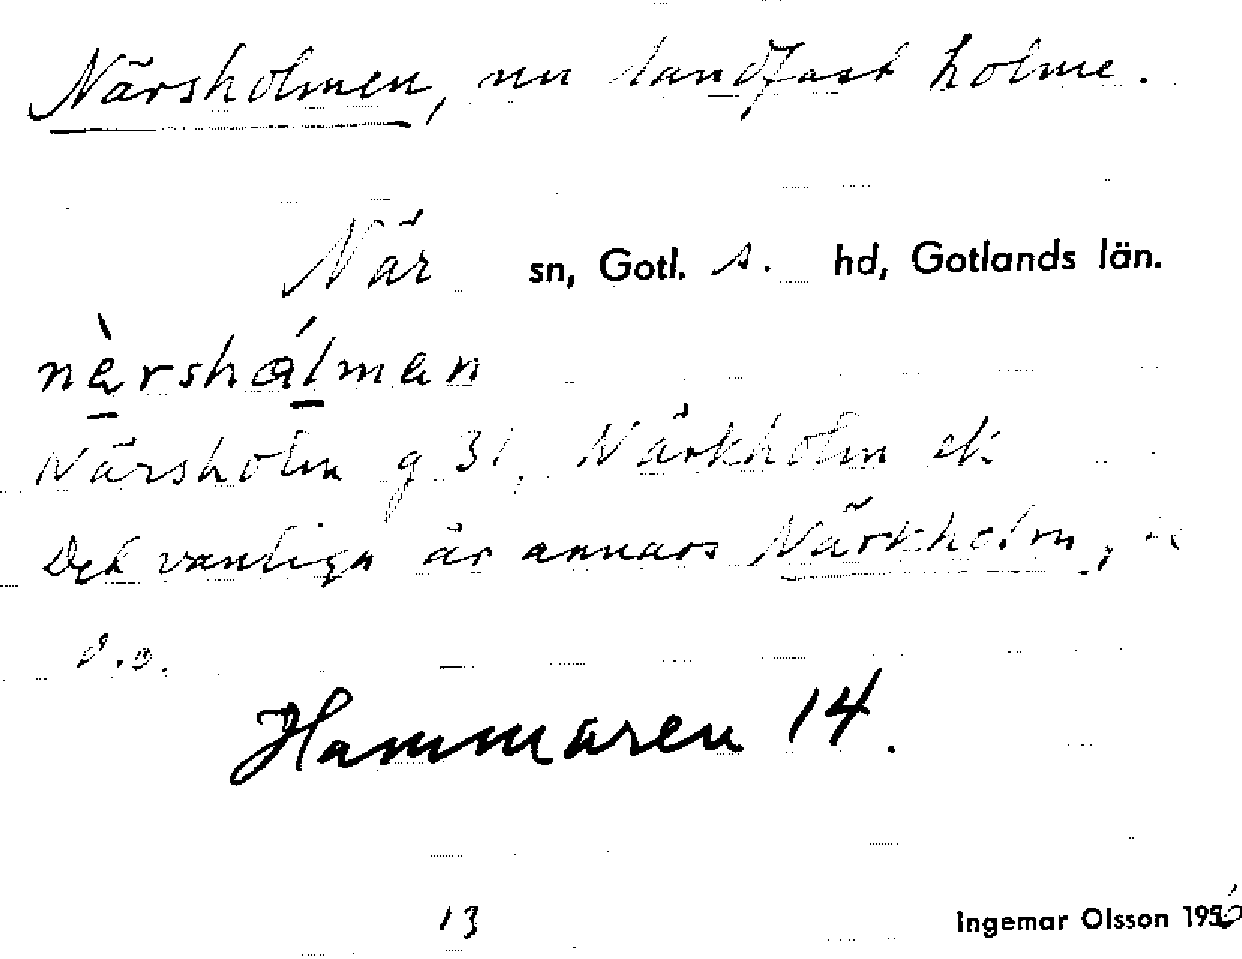 Närsholmen, nu landfast holme.
När sn, Gotl. s. hd, Gotlands län.
nèrshálman
Närsholm g 31, Närkholm ek
Det vanliga är annars Närkholm,
Hammaren 14.
13
Ingemar Olsson 1956